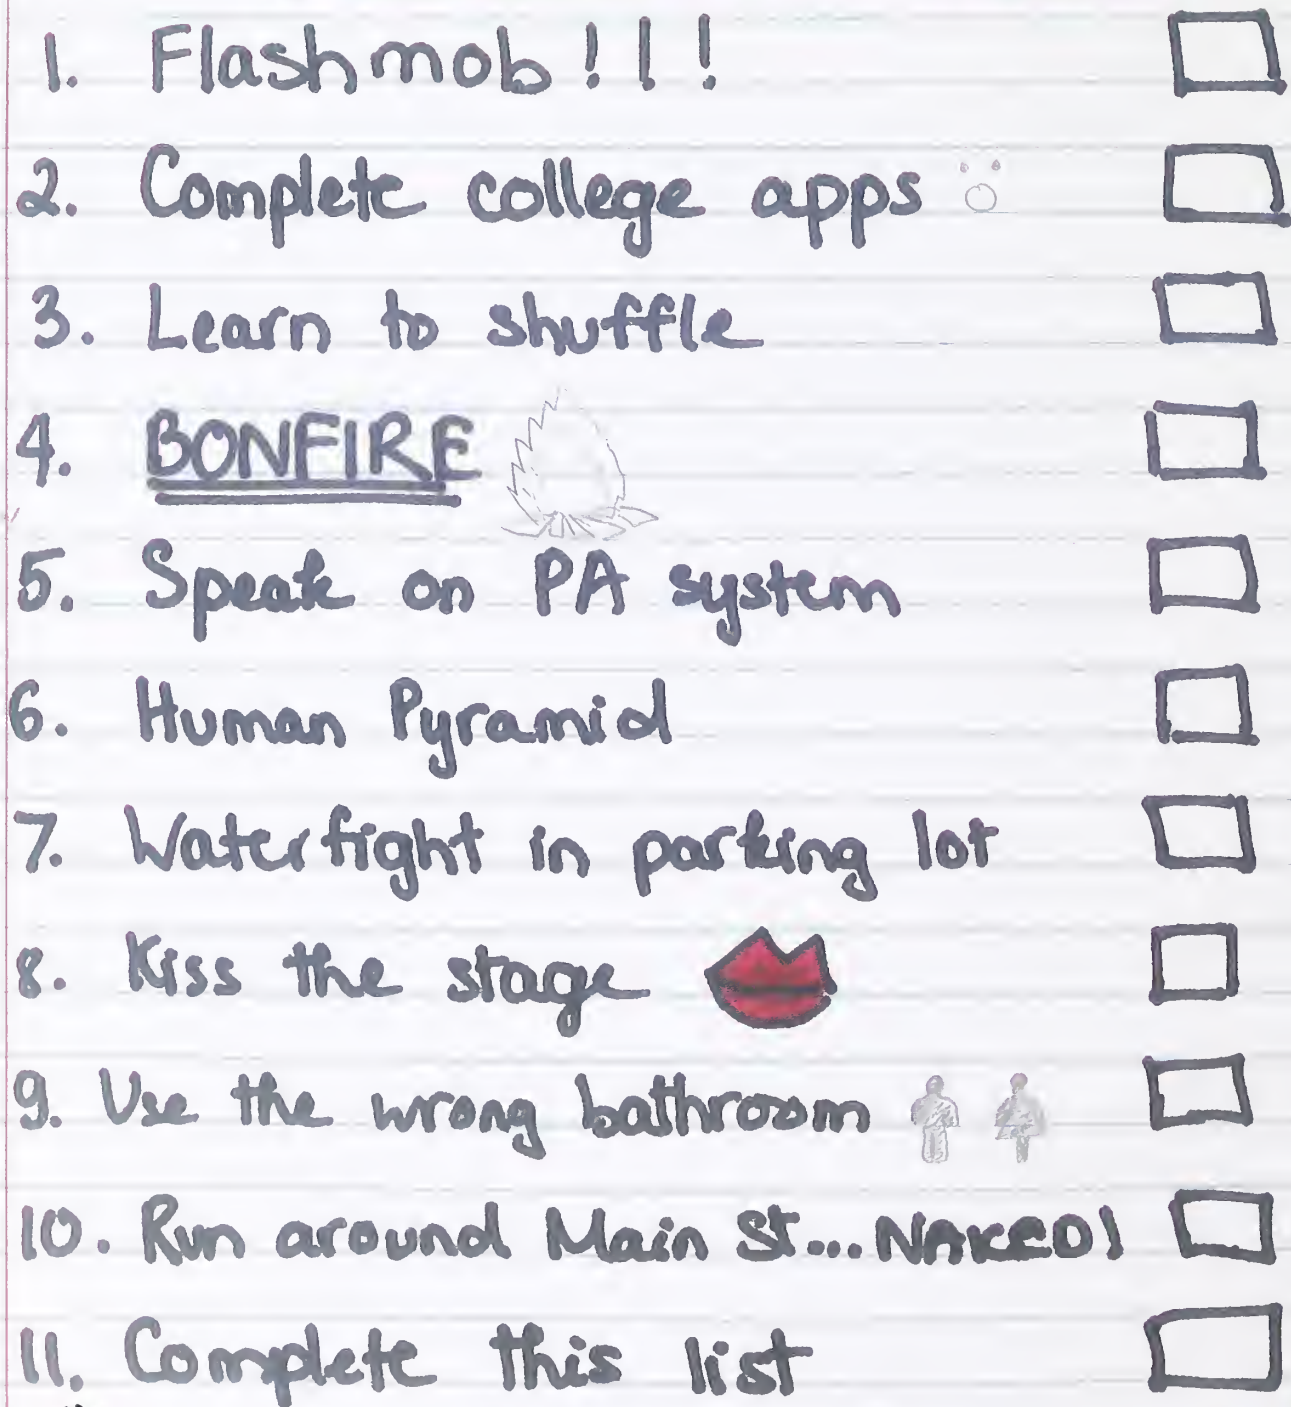 1. Flashmob!!!
2. Complete college apps
3. Learn to shuffle
4. BONFIRE
5. Speak on PA system
6. Human Pyramid
7. Waterfight in parking lot
8. Kiss the stage
9. Use the wrong bathroom
10. Run around Main St... NAKED!
11. Complete this list